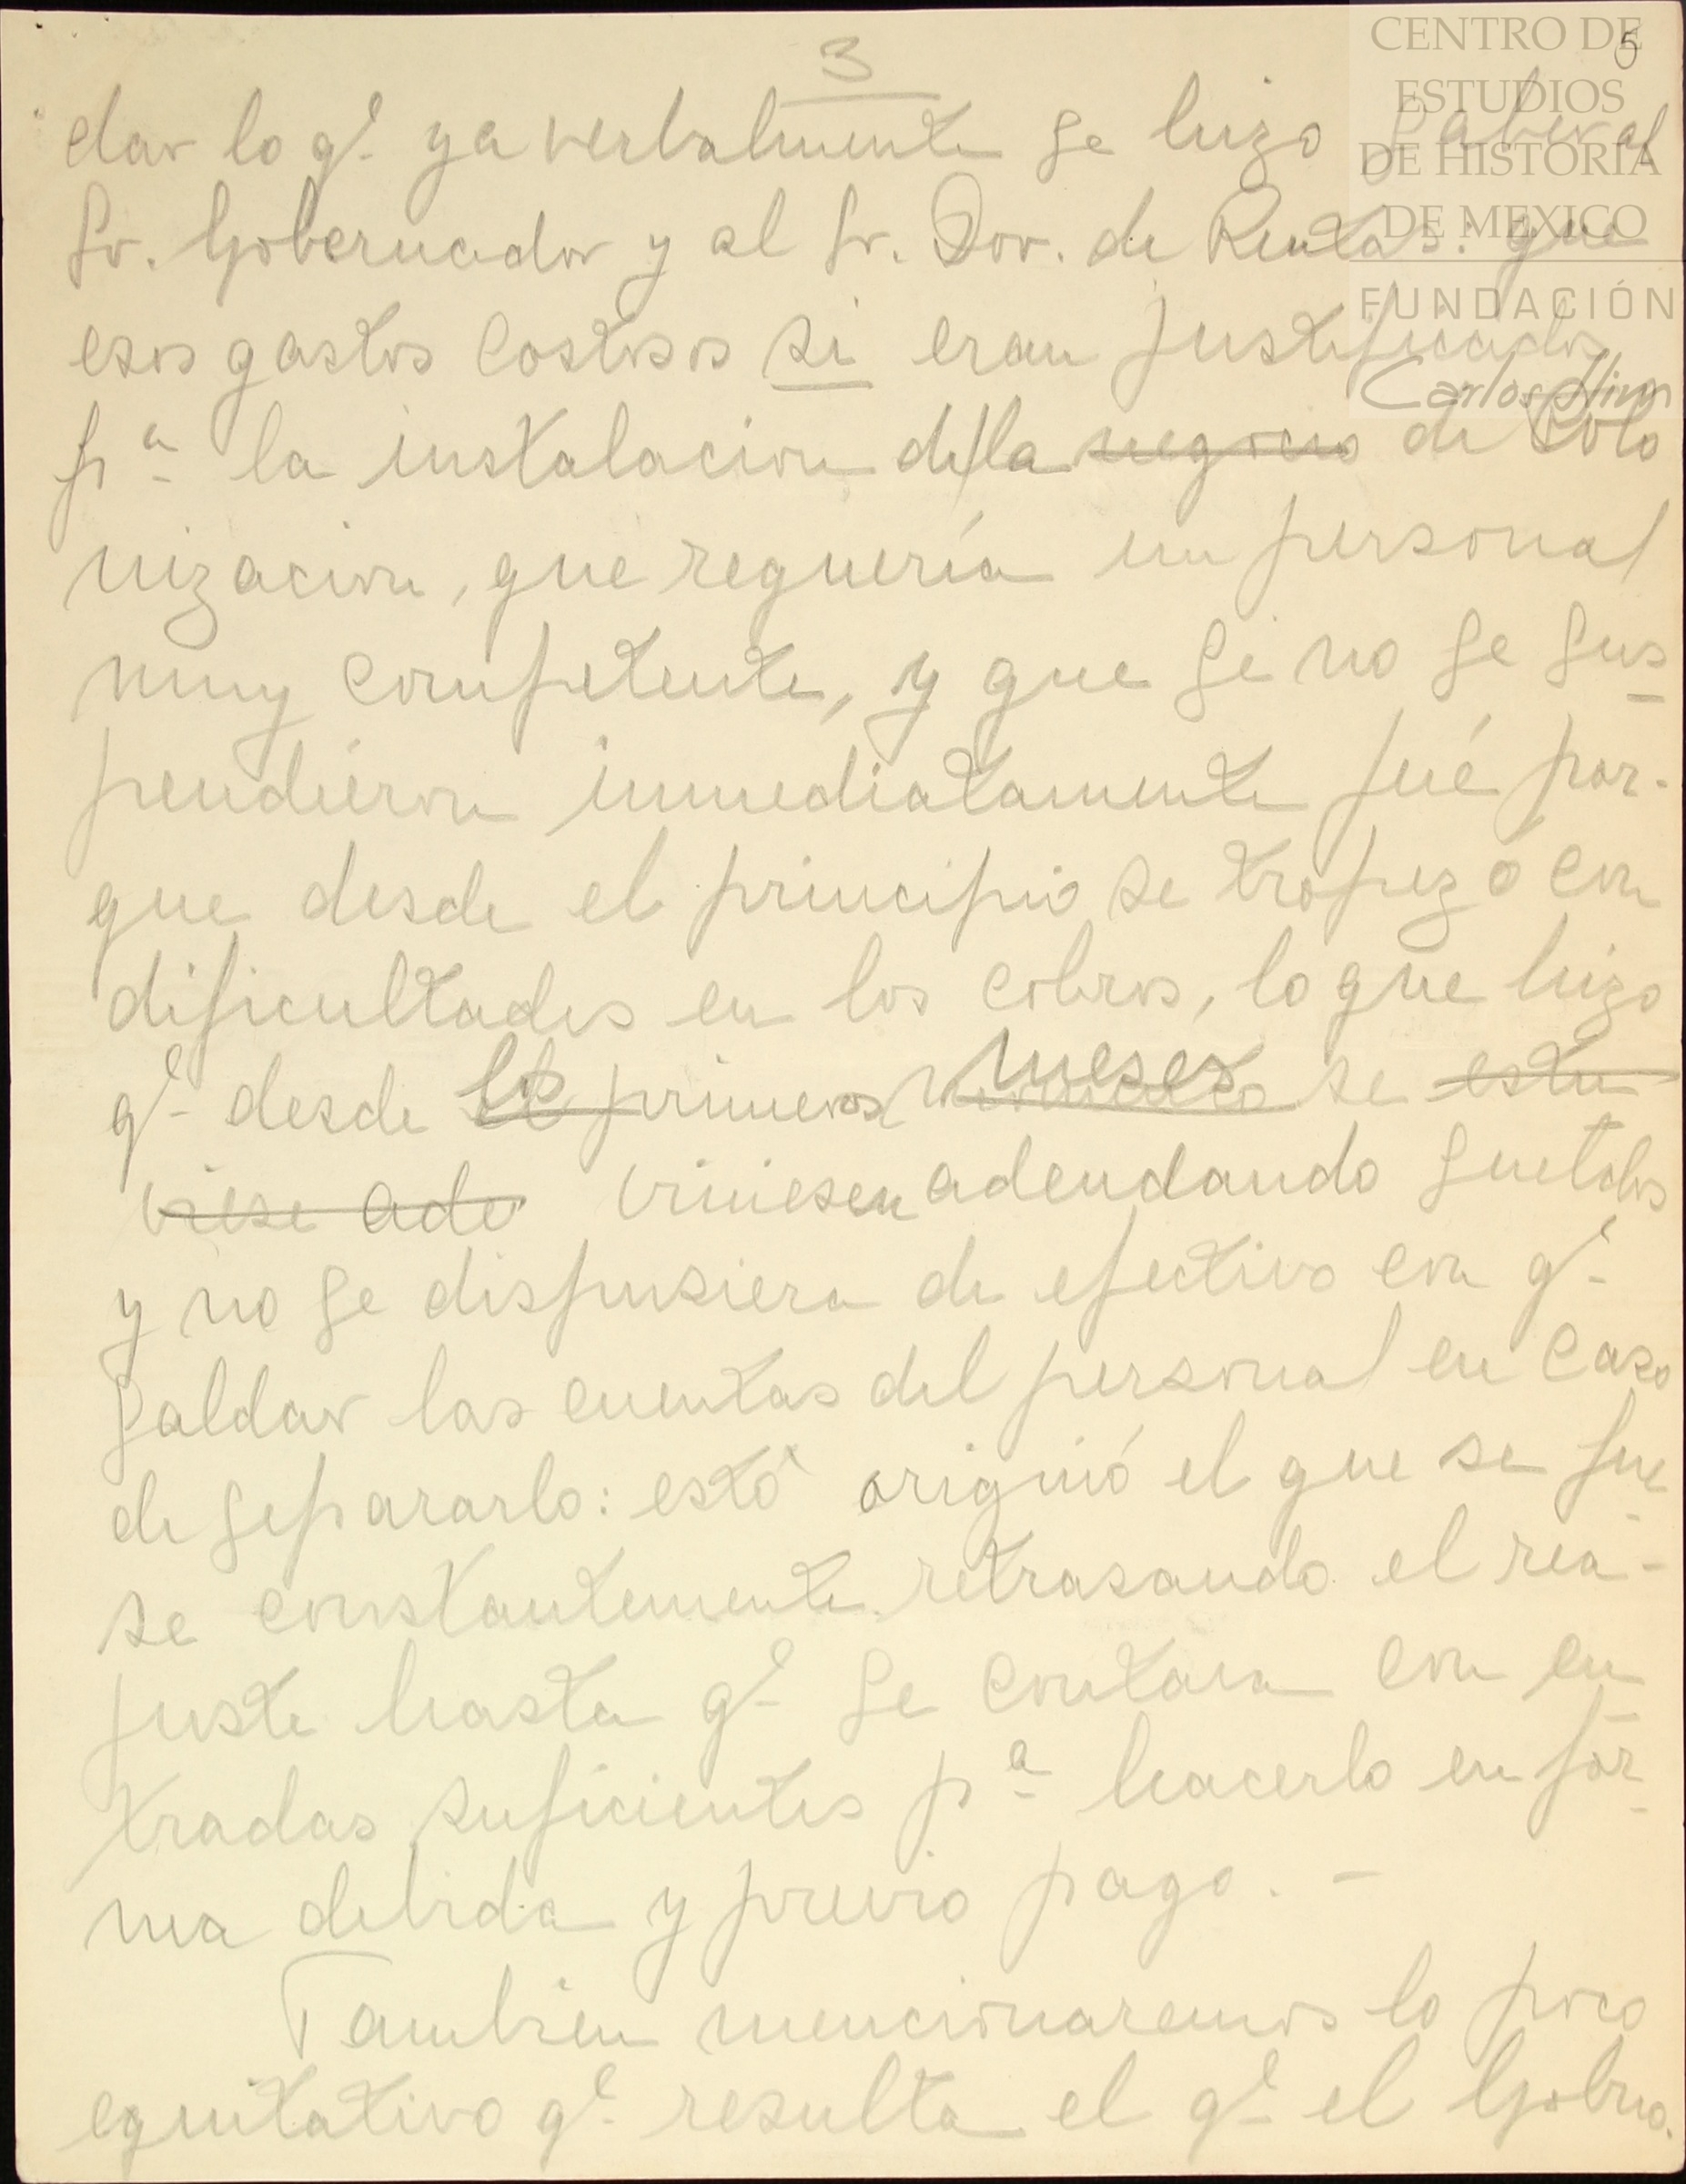 3
5
CENTRO DE
ESTUDIOS
DE HISTORIA
DE MEXICO
FUNDACIÓN
Carlos Slim
dar lo qe ya verbalmente se hizo saber al
Sr. Gobernador y al Sr. Dor. de Rentas: que
esos gastos costosos si eran justificados
pa la instalacion de la negocio de Colo
nizacion, que requería un personal
muy competente, y que si no se sus
pendieron inmediatamente fué por-
que desde el principio se tropezó con
dificultades en los cobros, lo que hizo
qe desde los primeros meses se estu
viese ade viniesen adeudando sueldos
y no se dispusiera de efectivo con qe
saldar las cuentas del personal en caso
de separarlo: estó originó el que se fue
se constantemente retrasando el rea-
juste hasta qe se contara con en
tradas suficientes pa hacerlo en for
ma debida y previo pago. -
Tambien mencionaremos lo poco
equitativo qe resulta el qe el Gobno.